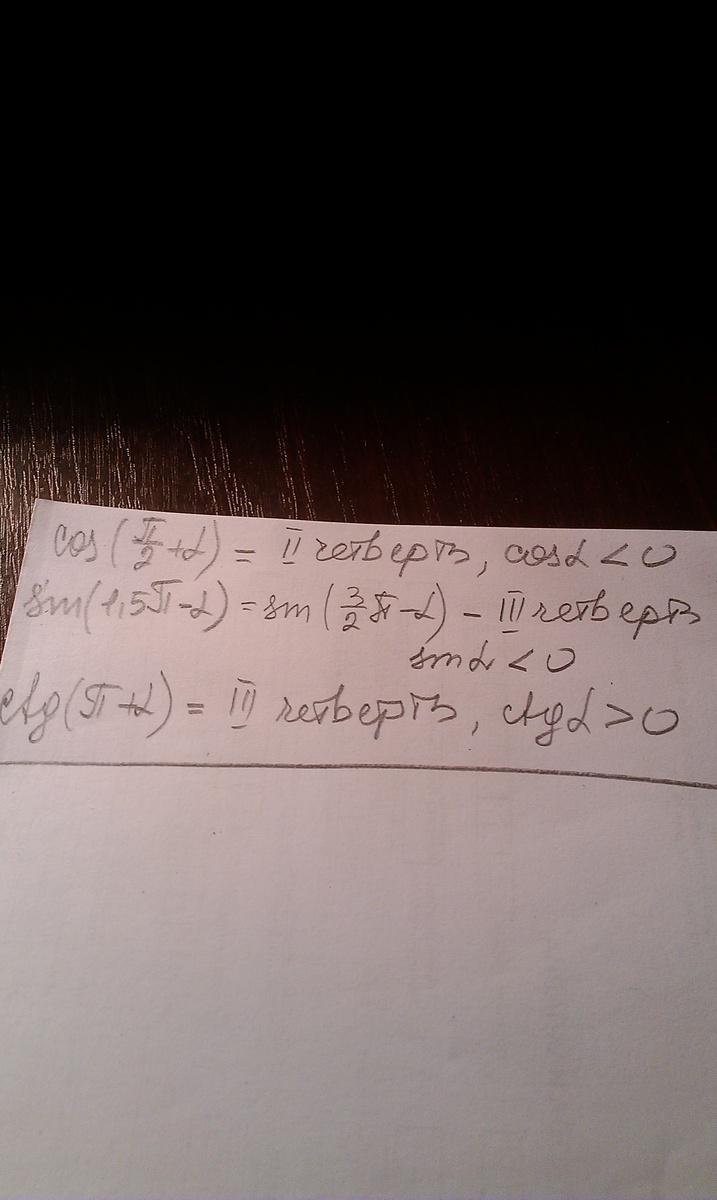 cos(π/2+α) = II четверть, cosα < 0
sin(1,5π-α) = sin(3/2π-α) - III четверть
sinα < 0
ctg(π+α) = III четверть, ctgα > 0